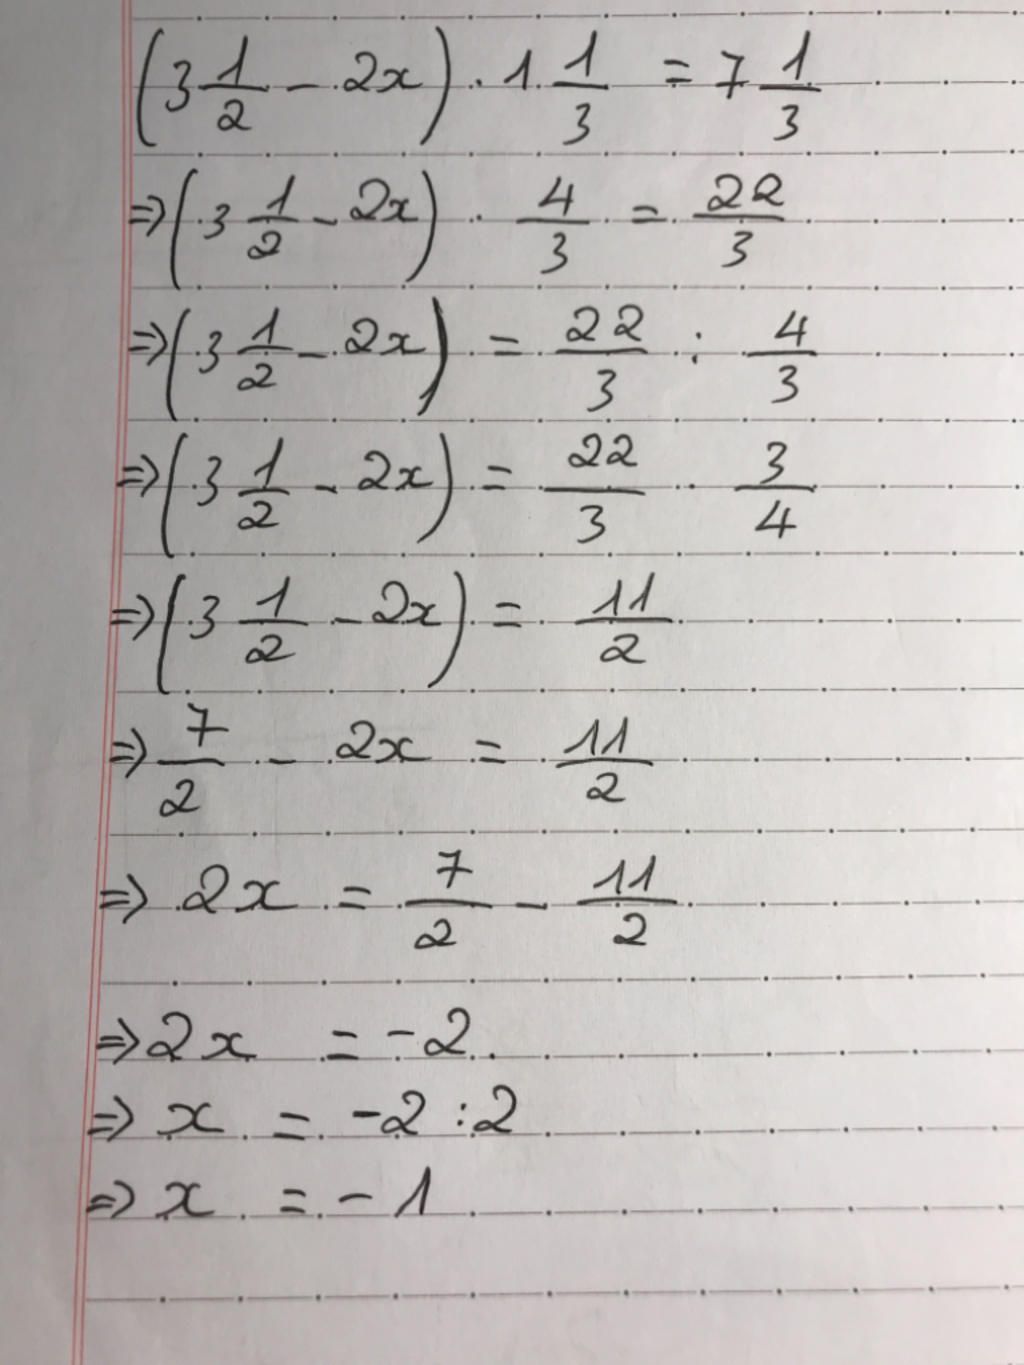 (3 1/2 - 2x) . 1 1/3 = 7 1/3
⇒ (3 1/2 - 2x) . 4/3 = 22/3
⇒ (3 1/2 - 2x) = 22/3 : 4/3
⇒ (3 1/2 - 2x) = 22/3 . 3/4
⇒ (3 1/2 - 2x) = 11/2
⇒ 7/2 - 2x = 11/2
⇒ 2x = 7/2 - 11/2
⇒ 2x = -2
⇒ x = -2 : 2
⇒ x = -1